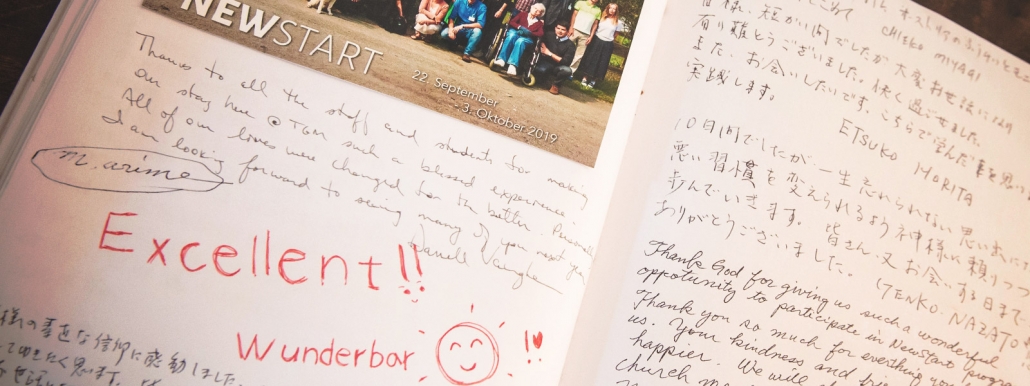 NEWSTART
22. September
- 3. Oktober 2019
Thanks to all the staff and students for making
our stay here @ TGM such a blessed experience!
All of our lives were changed for the better. Personally
I am looking forward to seeing many of you next year
m. arime
Excellent!!
Wunderbar !!
様の 素直な信仰に感動しました
CHIEKO MIYAGI
短かい間でしたが 大変お世話になり
有り難とうございました。快く過ごせました。
また、お会いしたいです。こちらで学んだ事を
実践します。
ETSUKO MORITA
10日間でしたが 一生忘れられない思い出に
悪い習慣を変えられるよう神様に頼りつつ
歩んでいきます。皆さん、又お会いする日まで
ありがとうございました。
Thank God for giving us such a wonderful
oppotunity to participate in Newstart progra
Thank you so much for everthing you
us. Your kindness and
happier. We will
church